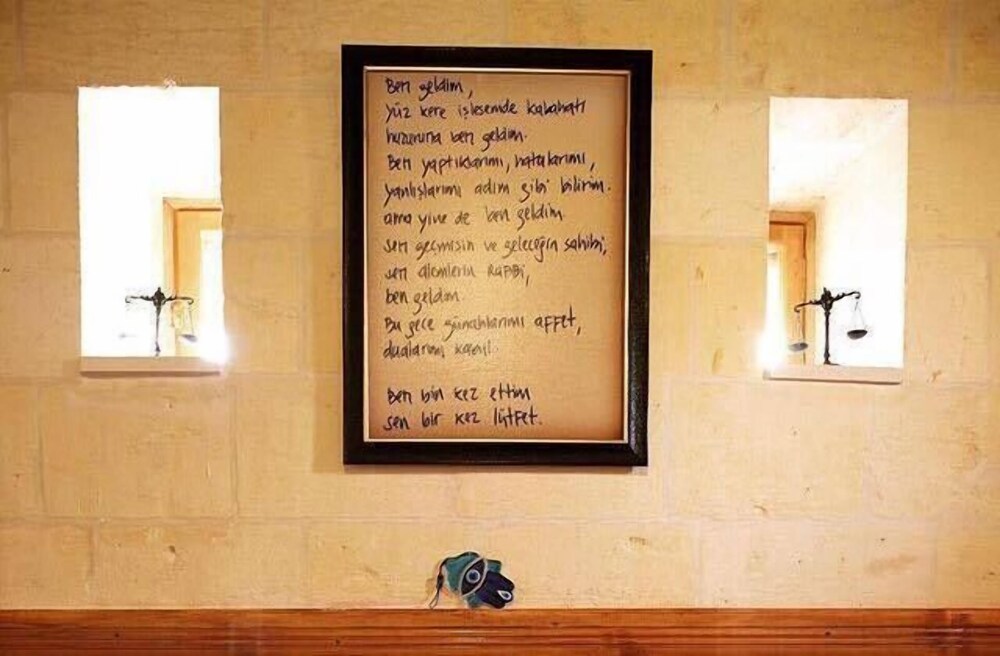 Ben geldim,
yüz kere işlesemde kabahati
huzuruna ben geldim.
Ben yaptıklarımı, hatalarımı,
yanlışlarımı adım gibi bilirim.
ama yine de ben geldim
sen geçmişin ve geleceğin sahibi,
sen alemlerin Rabbi,
ben geldim
Bu gece günahlarımı affet,
dualarımı kabul
Ben bin kez ettim
sen bir kez lütfet.